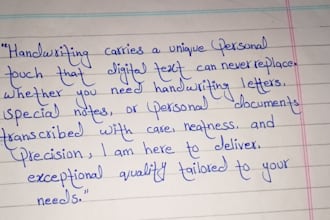 "Handwriting carries a unique personal
touch that digital text can never replace.
whether you need handwriting letters,
special notes, or personal documents
transcribed with care, neatness, and
Precision, I am here to deliver.
exceptional quality tailored to your
needs."